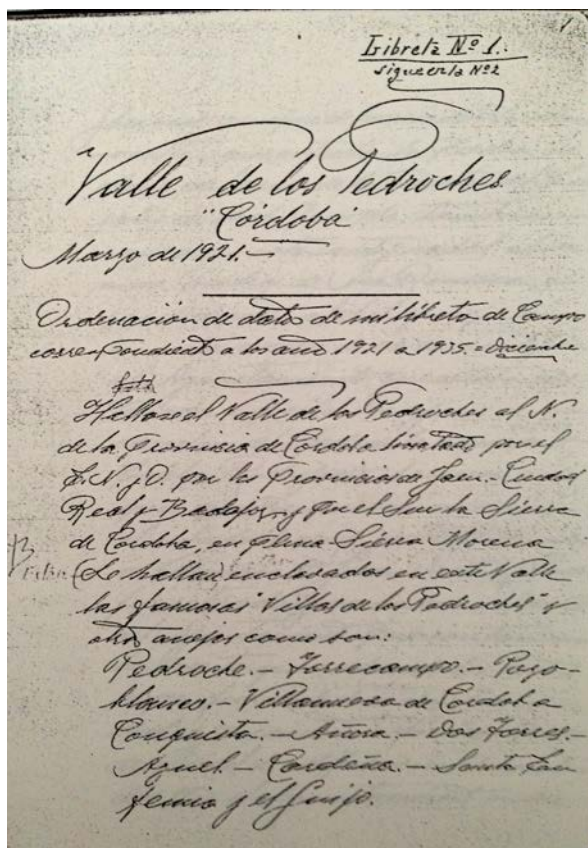 Libreta Nº 1.
sigue en la Nº 2
Valle de los Pedroches
"Córdoba"
Marzo de 1921.-
Ordenación de datos de mi libreta de Campo
correspondiente a los años 1921 a 1935. = Diciembre
Hallase el Valle de los Pedroches al N.
de la Provincia de Córdoba limitado por el
E. N. y O. por las Provincias de Jaen - Ciudad
Real y Badajoz, y por el Sur la Sierra
de Cordoba, en plena Sierra Morena
(Se hallan) enclavados en este Valle
las famosas "Villas de los Pedroches" y
otros anejos como son:
Pedroche. - Torrecampo. - Pozo-
blanco. - Villanueva de Cordoba
Conquista. - Añora. - Dos Torres. -
Azuel. - Cardeña. - Santa Eu
femia y el Guijo.